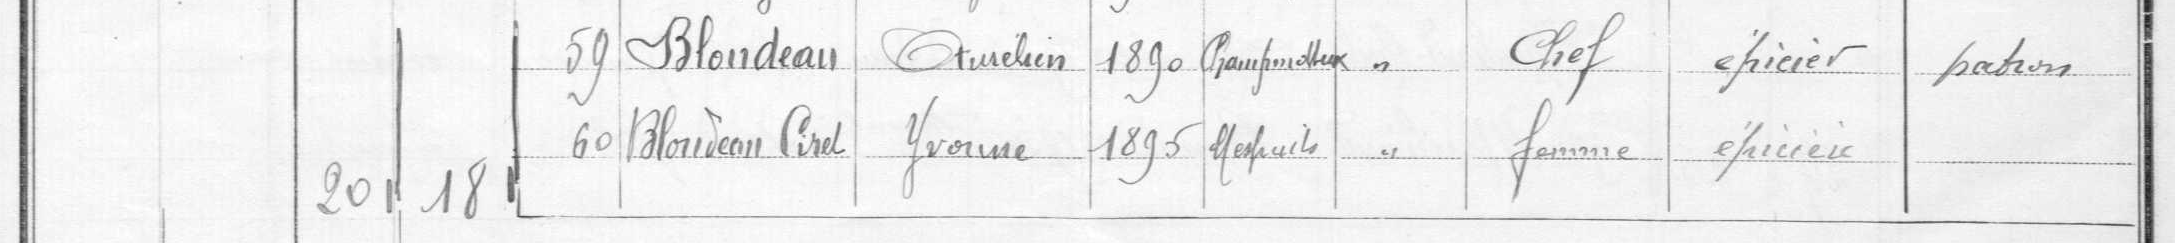 59 Blondeau Aurélien 1890 Champmotteux " Chef épicier patron
60 Blondeau Pinel Yvonne 1895 Mespuits " femme épicière
20 18